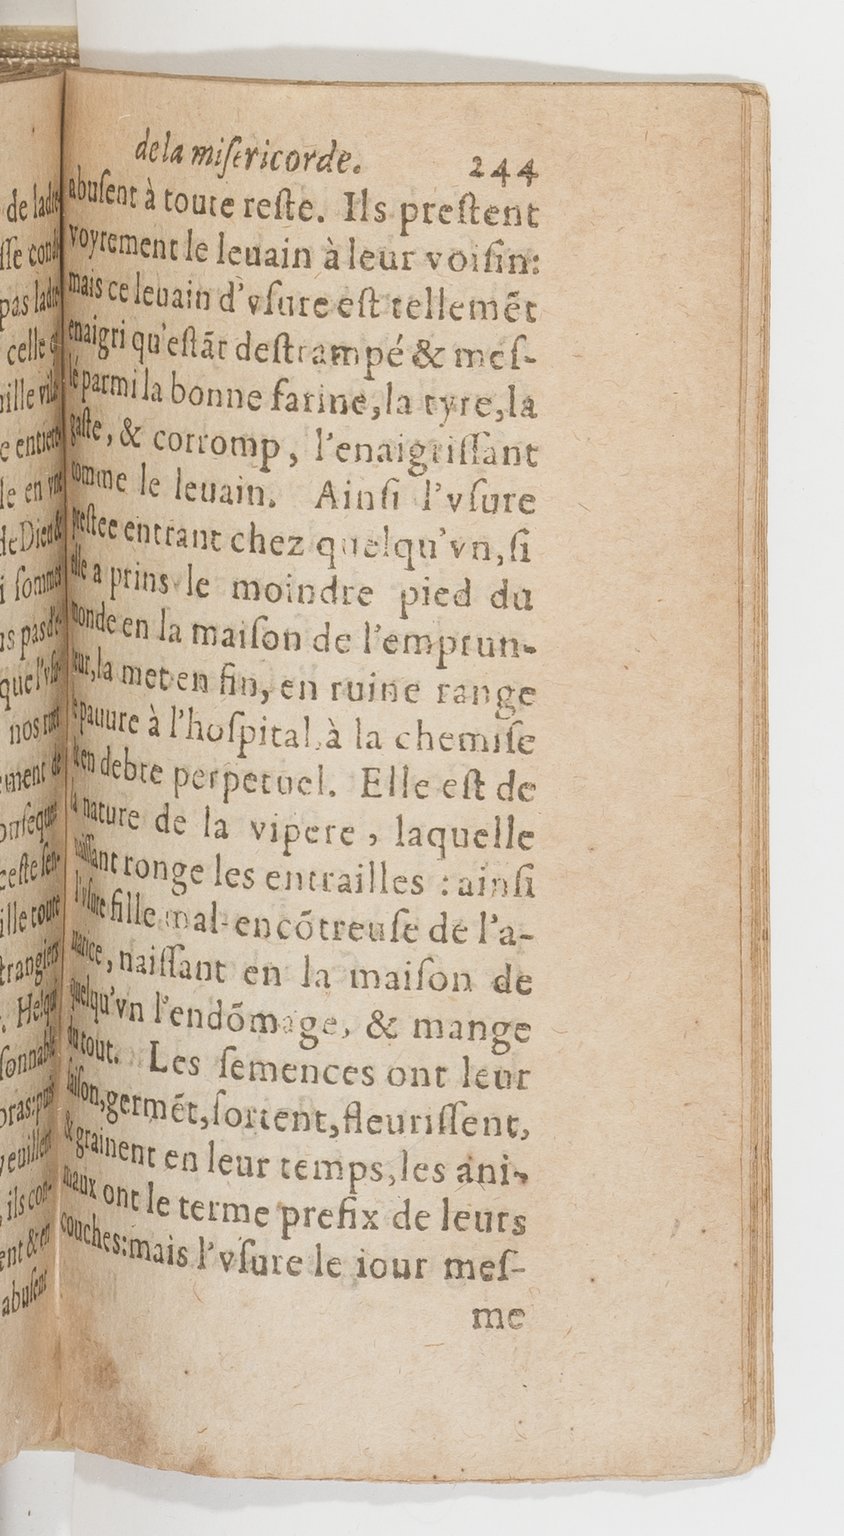 de la miſericorde. 244
abuſent à toute reſte. Ils preſtent
voyrement le leuain à leur voiſin:
mais ce leuain d'vſure eſt tellemẽt
enaigri qu'eſtãt deſtrampé & meſ-
lé parmi la bonne farine, la tyre, la
gaſte, & corromp, l'enaigriſſant
comme le leuain. Ainſi l'vſure
preſtee entrant chez quelqu'vn, ſi
elle a prins le moindre pied du
monde en la maiſon de l'emprun-
teur, la met en fin, en ruine range
le pauure à l'hoſpital, à la chemiſe
& en debte perpetuel. Elle eſt de
la nature de la vipere, laquelle
naiſſant ronge les entrailles : ainſi
l'vſure fille mal-encõtreuſe de l'a-
uarice, naiſſant en la maiſon de
quelqu'vn l'endõmage, & mange
du tout. Les ſemences ont leur
ſaiſon, germẽt, ſortent, fleuriſſent,
& grainent en leur temps, les ani-
maux ont le terme prefix de leurs
couches: mais l'vſure le iour meſ-
me